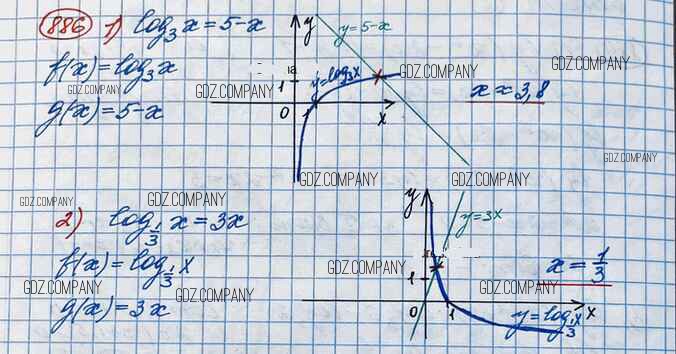 886 1) log₃x = 5-x
f(x) = log₃x
g(x) = 5-x
y
y=5-x
y=log₃x
1
0
1
x
x ≈ 3,8
GDZ.COMPANY
GDZ.COMPANY
GDZ.COMPANY
GDZ.COMPANY
GDZ.COMPANY
GDZ.COMPANY
GDZ.COMPANY
GDZ.COMPANY
GDZ.COMPANY
GDZ.COMPANY
2) log_{1/3} x = 3x
f(x) = log_{1/3} x
g(x) = 3x
y
y=3x
1
0
1
x
y=log_{1/3} x
x = 1/3
GDZ.COMPANY
GDZ.COMPANY
GDZ.COMPANY
GDZ.COMPANY